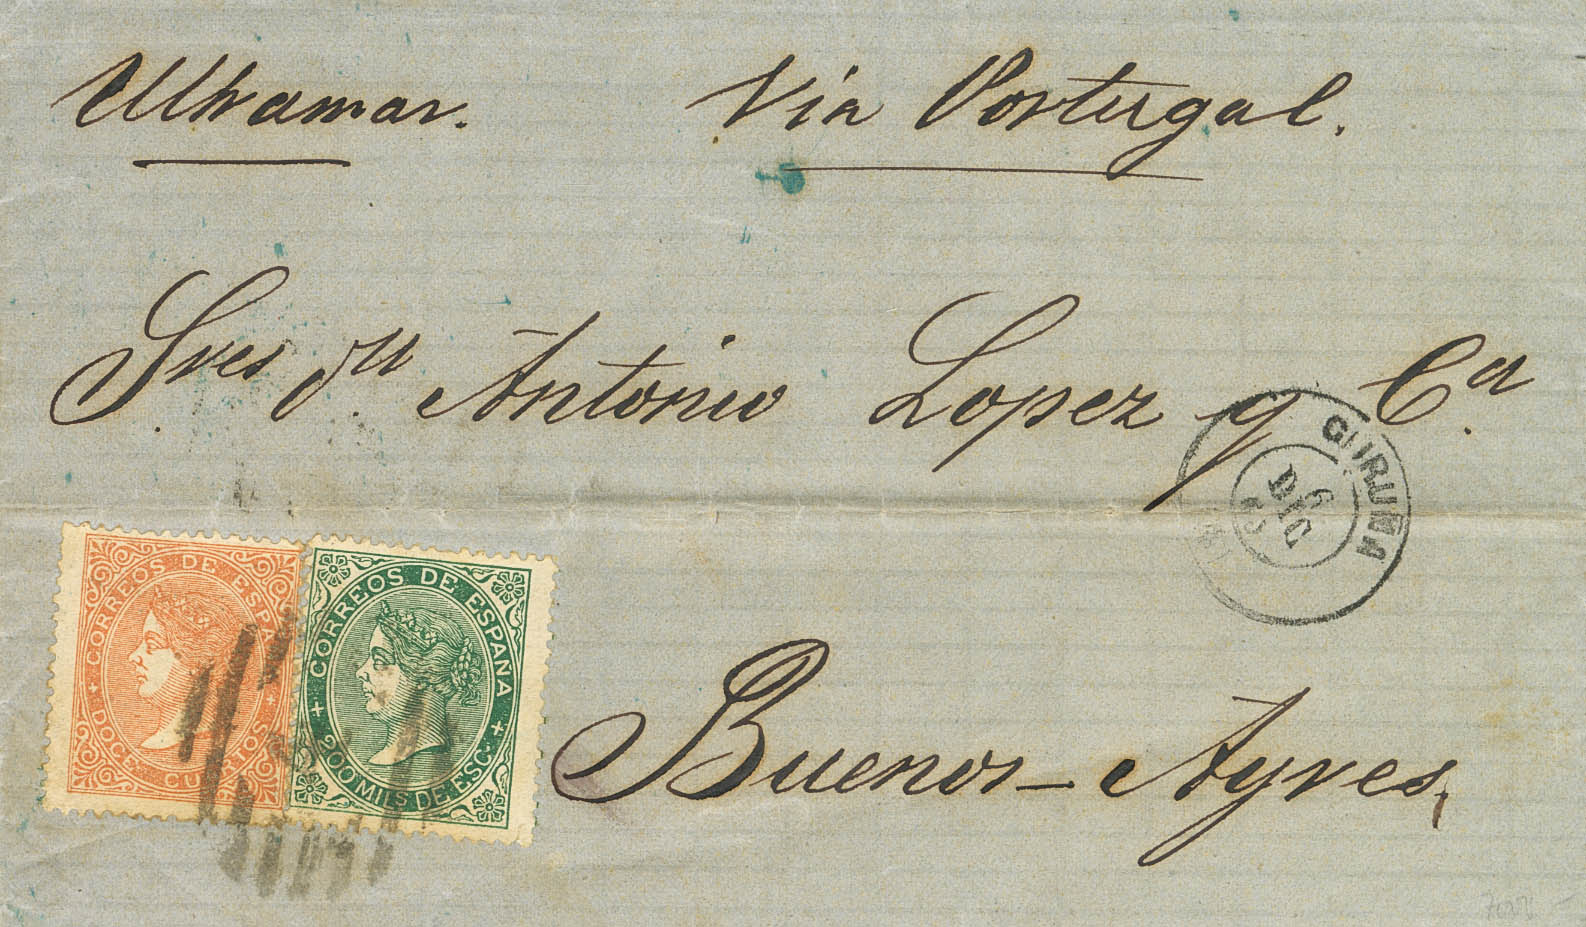 Ultramar. Via Portugal.
Sres dn Antonio Lopez y Ca.
CORUÑA
6
DIC
CORREOS DE ESPAÑA
DOCE CUARTOS
CORREOS DE ESPAÑA
200 MILS DE ESC.
Buenos-Ayres.